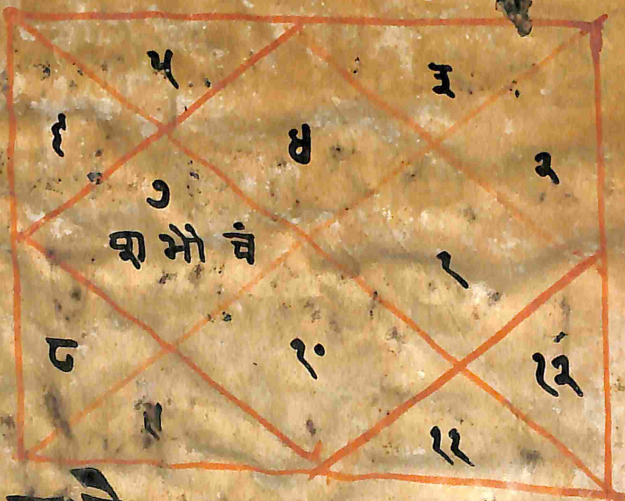 ५
३
६
४
२
७
श भौ चं
१
८
१०
१२
९
११